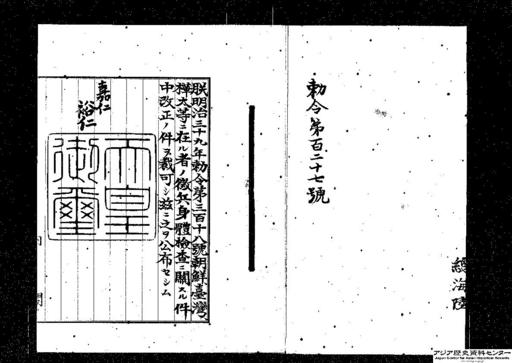 勅令第百二十七號
總海陸
朕明治三十九年勅令第三百十八號朝鮮臺灣
樺太等ニ在ル者ノ徴兵身體檢査ニ關スル件
中改正ノ件ヲ裁可シ茲ニ之ヲ公布セシム
嘉仁
裕仁
天皇
御璽
内
閣
アジア歴史資料センター
Japan Center for Asian Historical Records